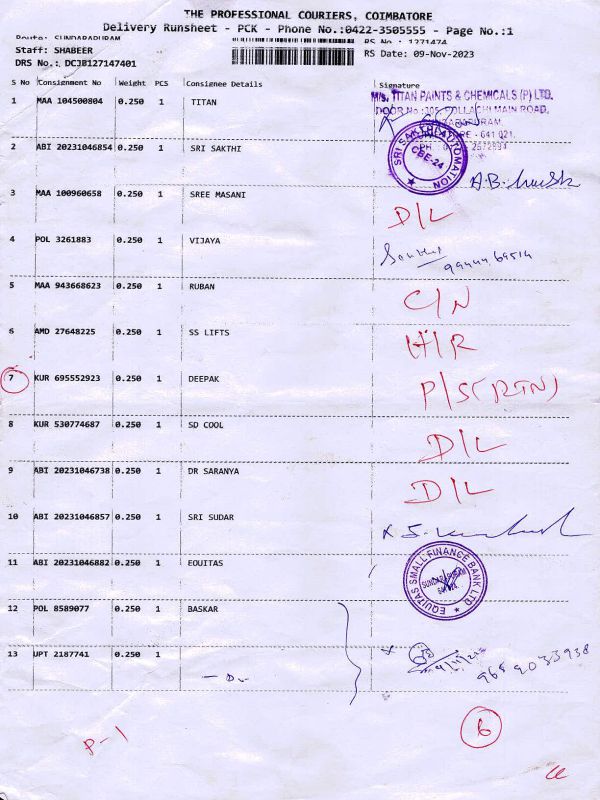 THE PROFESSIONAL COURIERS, COIMBATORE
Delivery Runsheet - PCK - Phone No.:0422-3505555 - Page No.:1
Route: SUNDARAPURAM RS No.: 1271474
Staff: SHABEER RS Date: 09-Nov-2023
DRS No.: DCJB127147401
S No Consignment No Weight PCS Consignee Details Signature
1 MAA 104500804 0.250 1 TITAN
M/s. TITAN PAINTS & CHEMICALS (P) LTD.
DOOR No :305, POLLACHI MAIN ROAD,
641 021.
2 ABI 20231046854 0.250 1 SRI SAKTHI
SRI SAKTHI AUTOMATION
CBE-24
3 MAA 100960658 0.250 1 SREE MASANI D/L
4 POL 3261883 0.250 1 VIJAYA
5 MAA 943668623 0.250 1 RUBAN C/N
6 AMD 27648225 0.250 1 SS LIFTS H/R
7 KUR 695552923 0.250 1 DEEPAK P/S(RTN)
8 KUR 530774687 0.250 1 SD COOL D/L
9 ABI 20231046738 0.250 1 DR SARANYA D/L
10 ABI 20231046857 0.250 1 SRI SUDAR
11 ABI 20231046882 0.250 1 EQUITAS
EQUITAS SMALL FINANCE BANK LTD
SUNDARAPURAM
12 POL 8589077 0.250 1 BASKAR
13 UPT 2187741 0.250 1 - Do -
9659033938
6
P-1